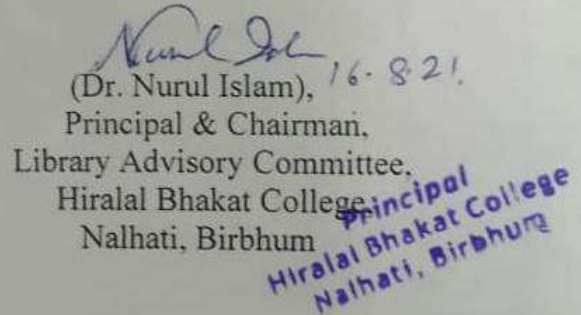 Nurul Islam
(Dr. Nurul Islam), 16.8.21.
Principal & Chairman,
Library Advisory Committee,
Hiralal Bhakat College
Nalhati, Birbhum
Principal
Hiralal Bhakat College
Nalhati, Birbhum